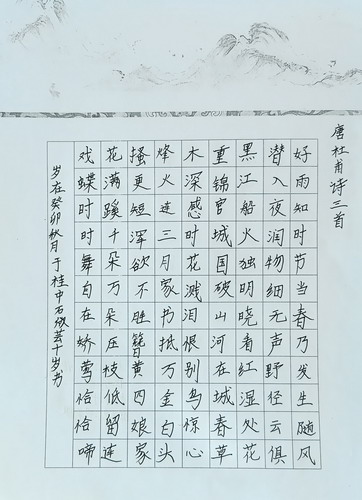 唐杜甫诗三首
好雨知时节当春乃发生随风
潜入夜润物细无声野径云俱
黑江船火独明晓看红湿处花
重锦官城国破山河在城春草
木深感时花溅泪恨别鸟惊心
烽火连三月家书抵万金白头
搔更短浑欲不胜簪黄四娘家
花满蹊千朵万朵压枝低留连
戏蝶时时舞自在娇莺恰恰啼
岁在癸卯秋月于桂中石芸十岁书